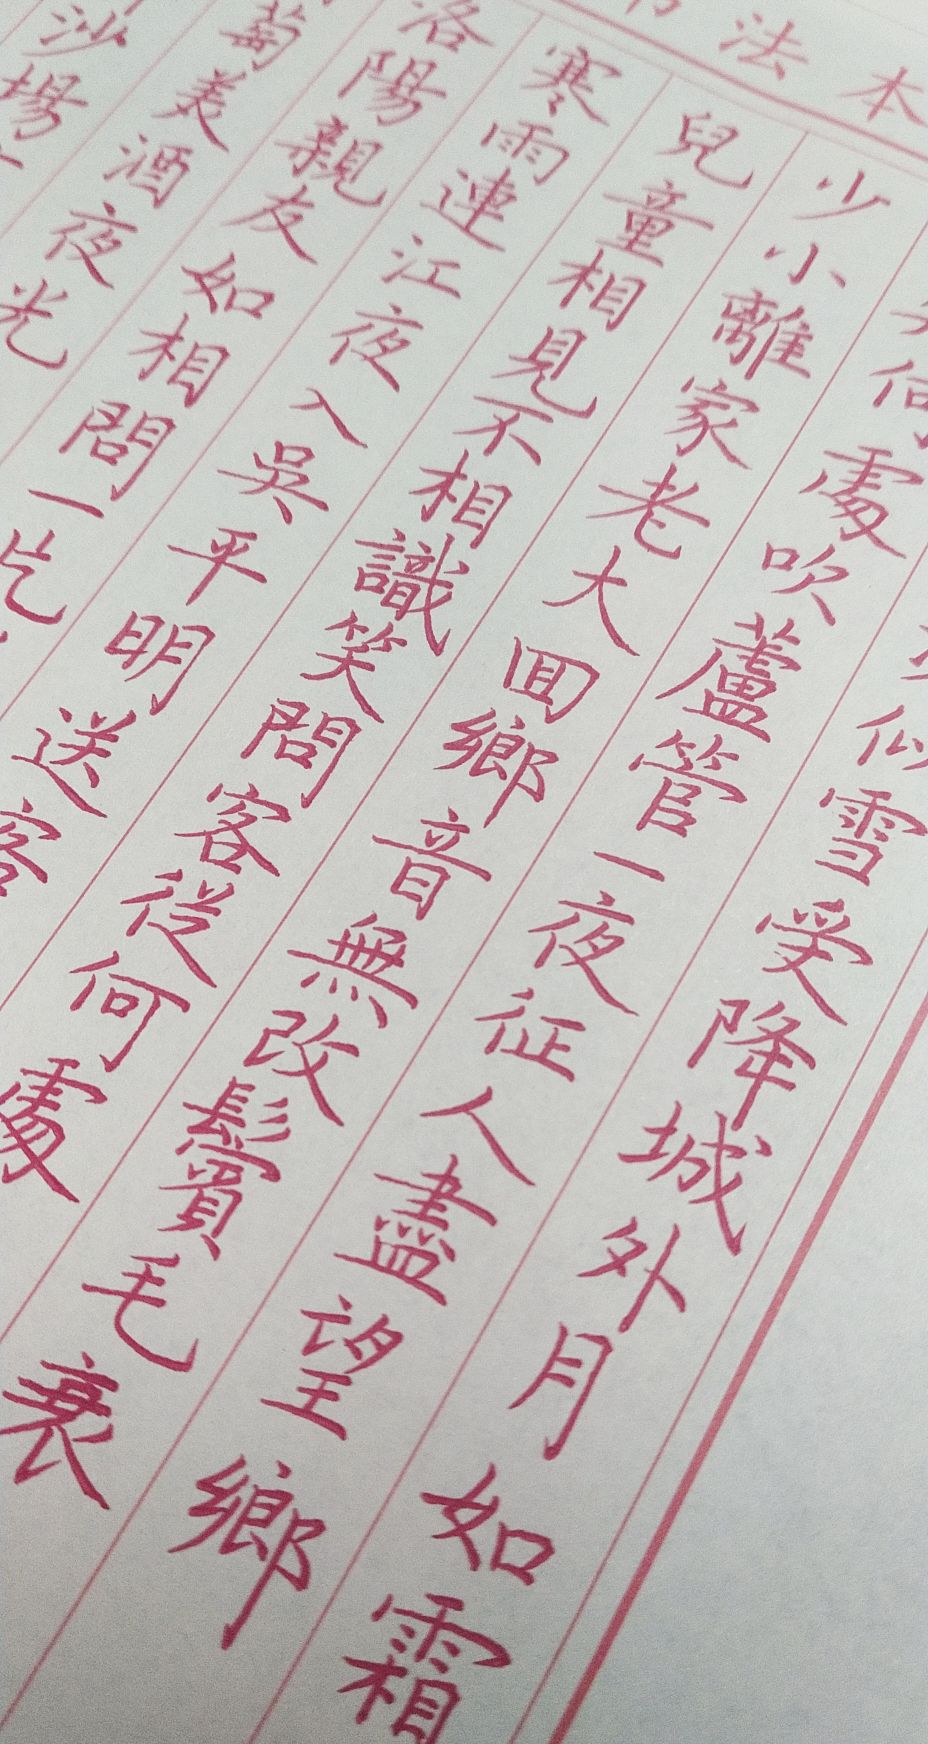 书法本
似雪受降城外月如霜
何處吹蘆管一夜征人盡望鄉
少小離家老大囬鄉音無改鬢毛衰
兒童相見不相識笑問客從何處
寒雨連江夜入吳平明送客
洛陽親友如相問一片
萄美酒夜光
沙場